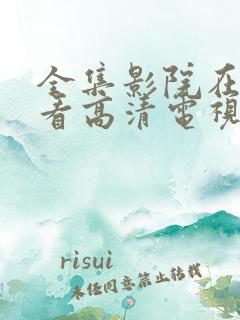 全集影院在
看高清電視
risui
未经同意禁止转载